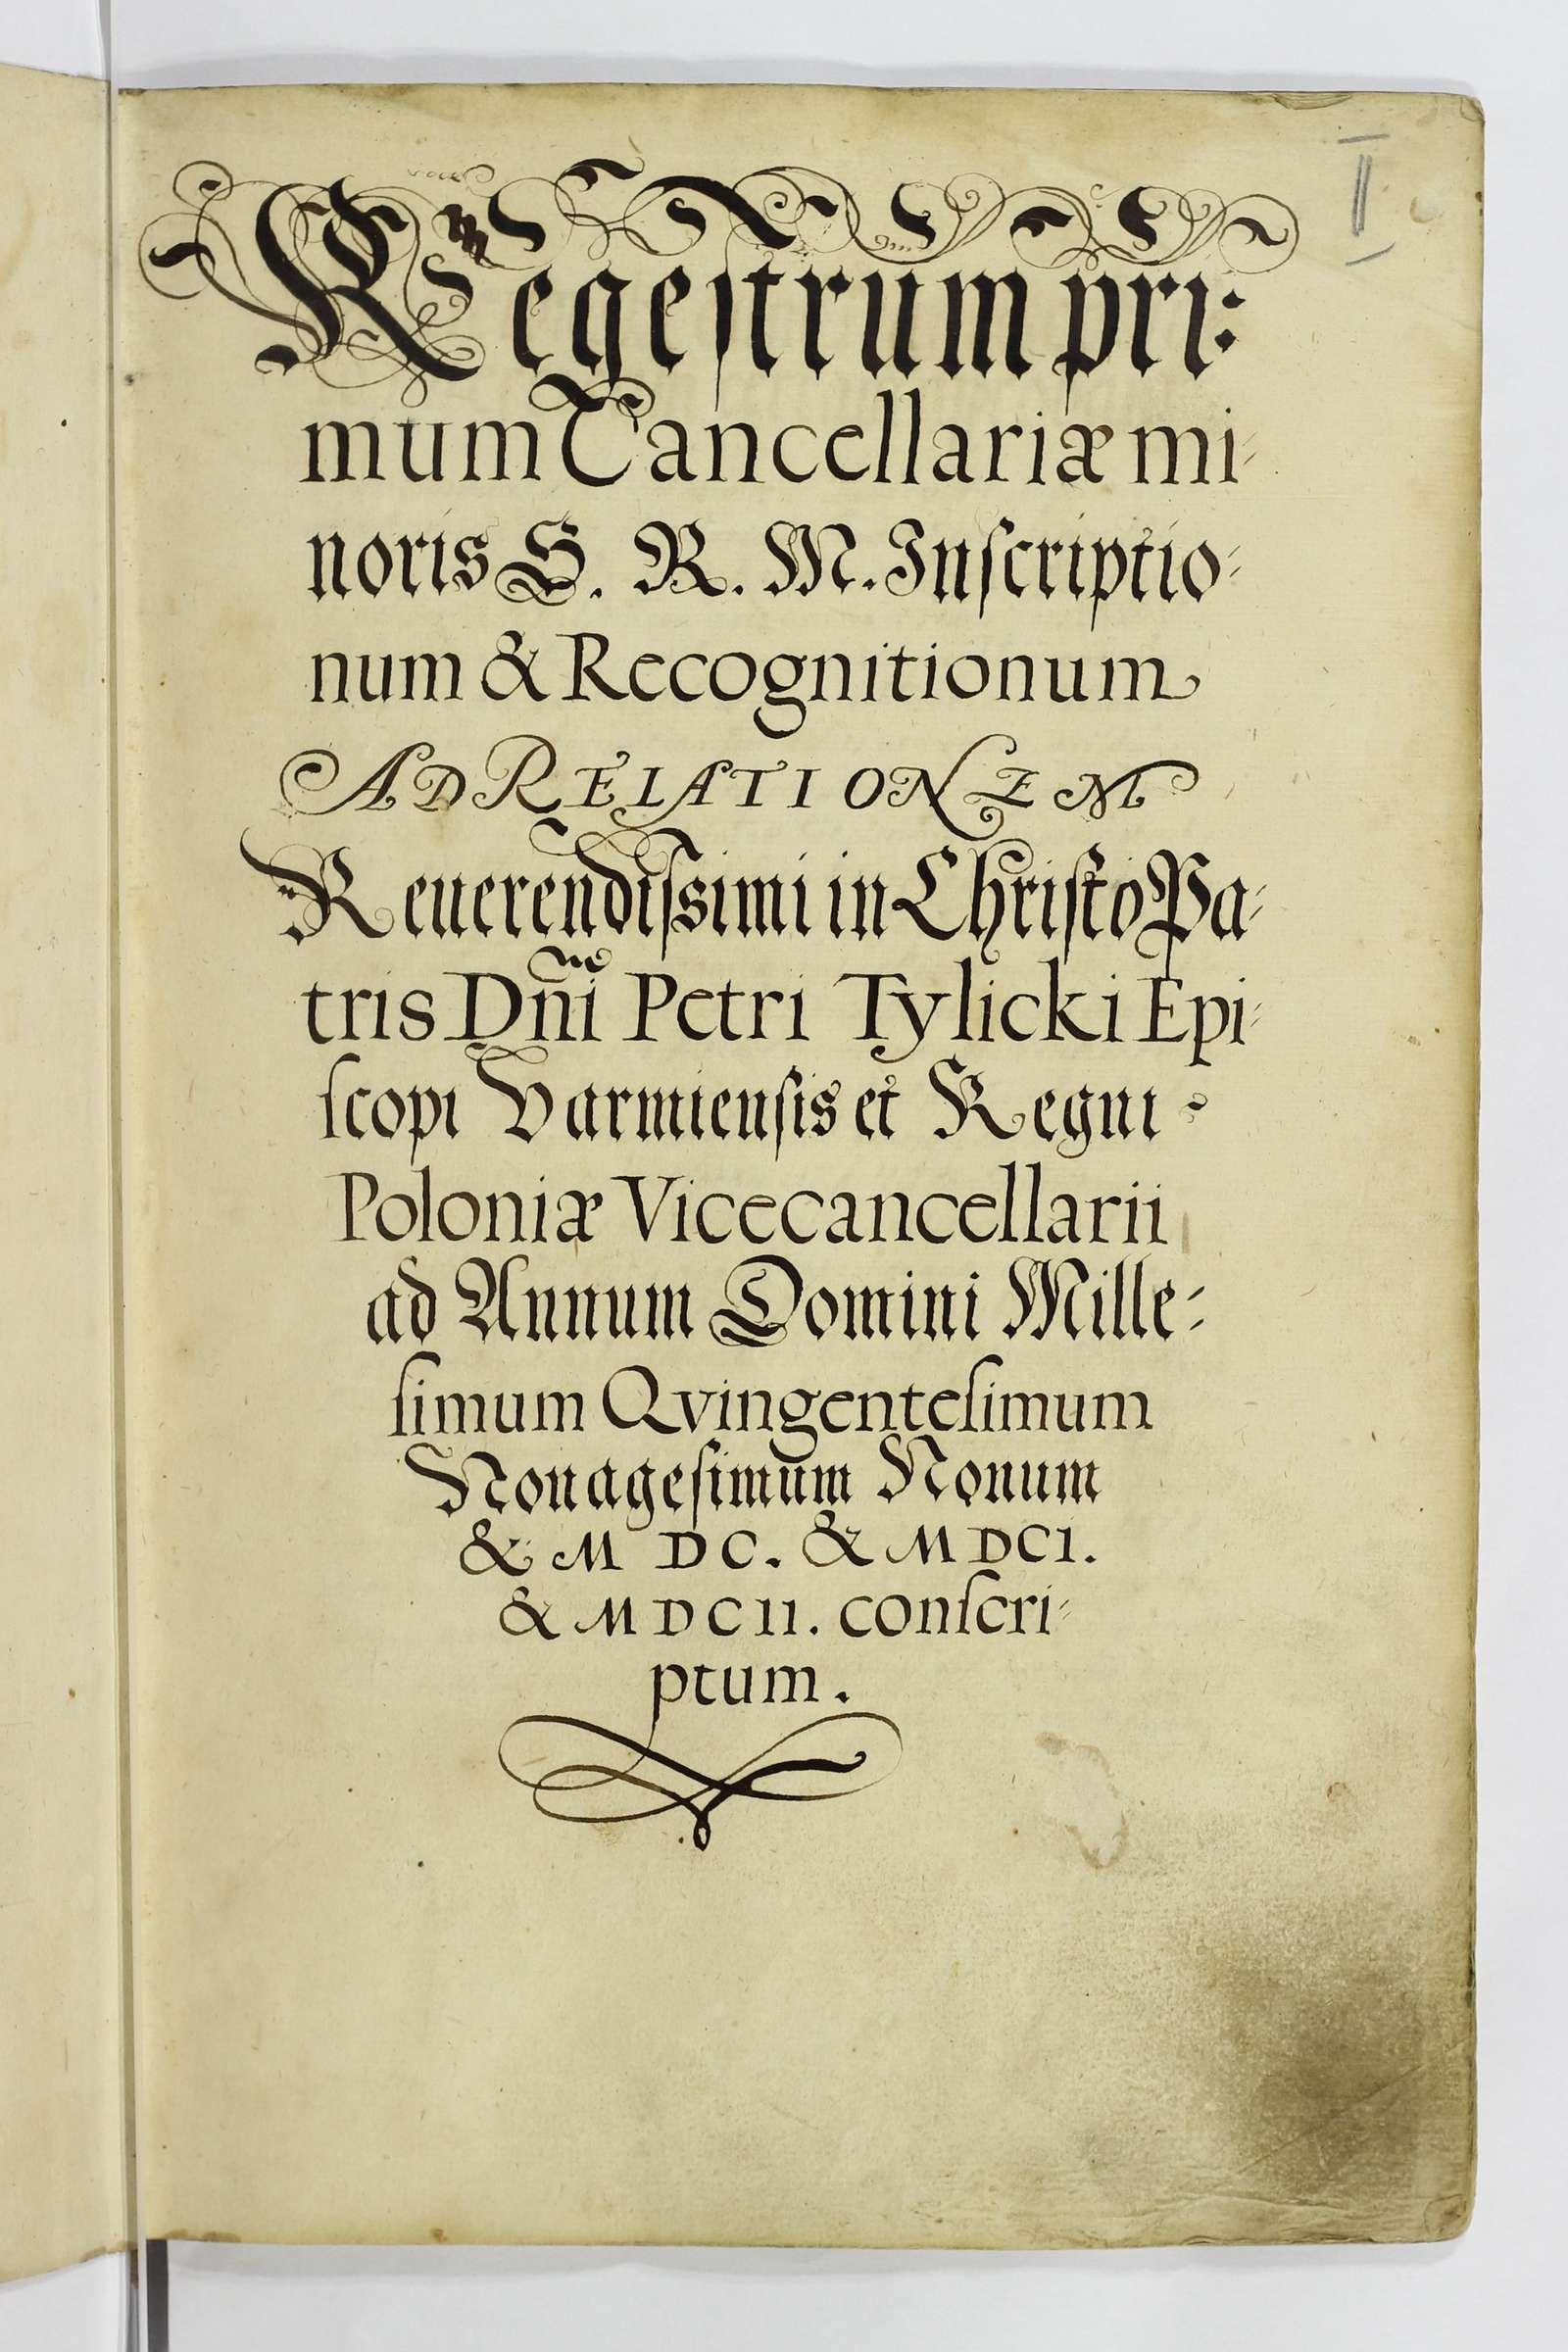 II
Regeſtrum pri:
mum Cancellariæ mi⸗
noris S. R. M. Inſcriptio⸗
num & Recognitionum
AD RELATIONEM
Reuerendiſsimi in Chriſto Pa⸗
tris Dñi Petri Tylicki Epi⸗
ſcopi Varmienſis et Regni
Poloniæ Vicecancellarii
ad Annum Domini Mille⸗
ſimum Qvingenteſimum
Nonageſimum Nonum
& MDC. & MDCI.
& MDCII. conſcri⸗
ptum.